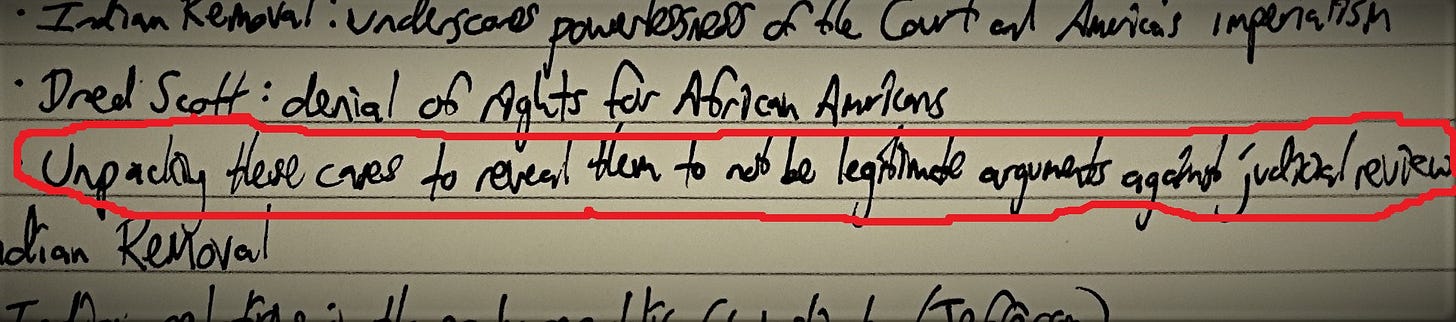 · Indian Removal: underscores powerlessness of the Court and America's imperialism
· Dred Scott: denial of rights for African Americans
Unpacking these cases to reveal them to not be legitimate arguments against judicial review
dian Removal